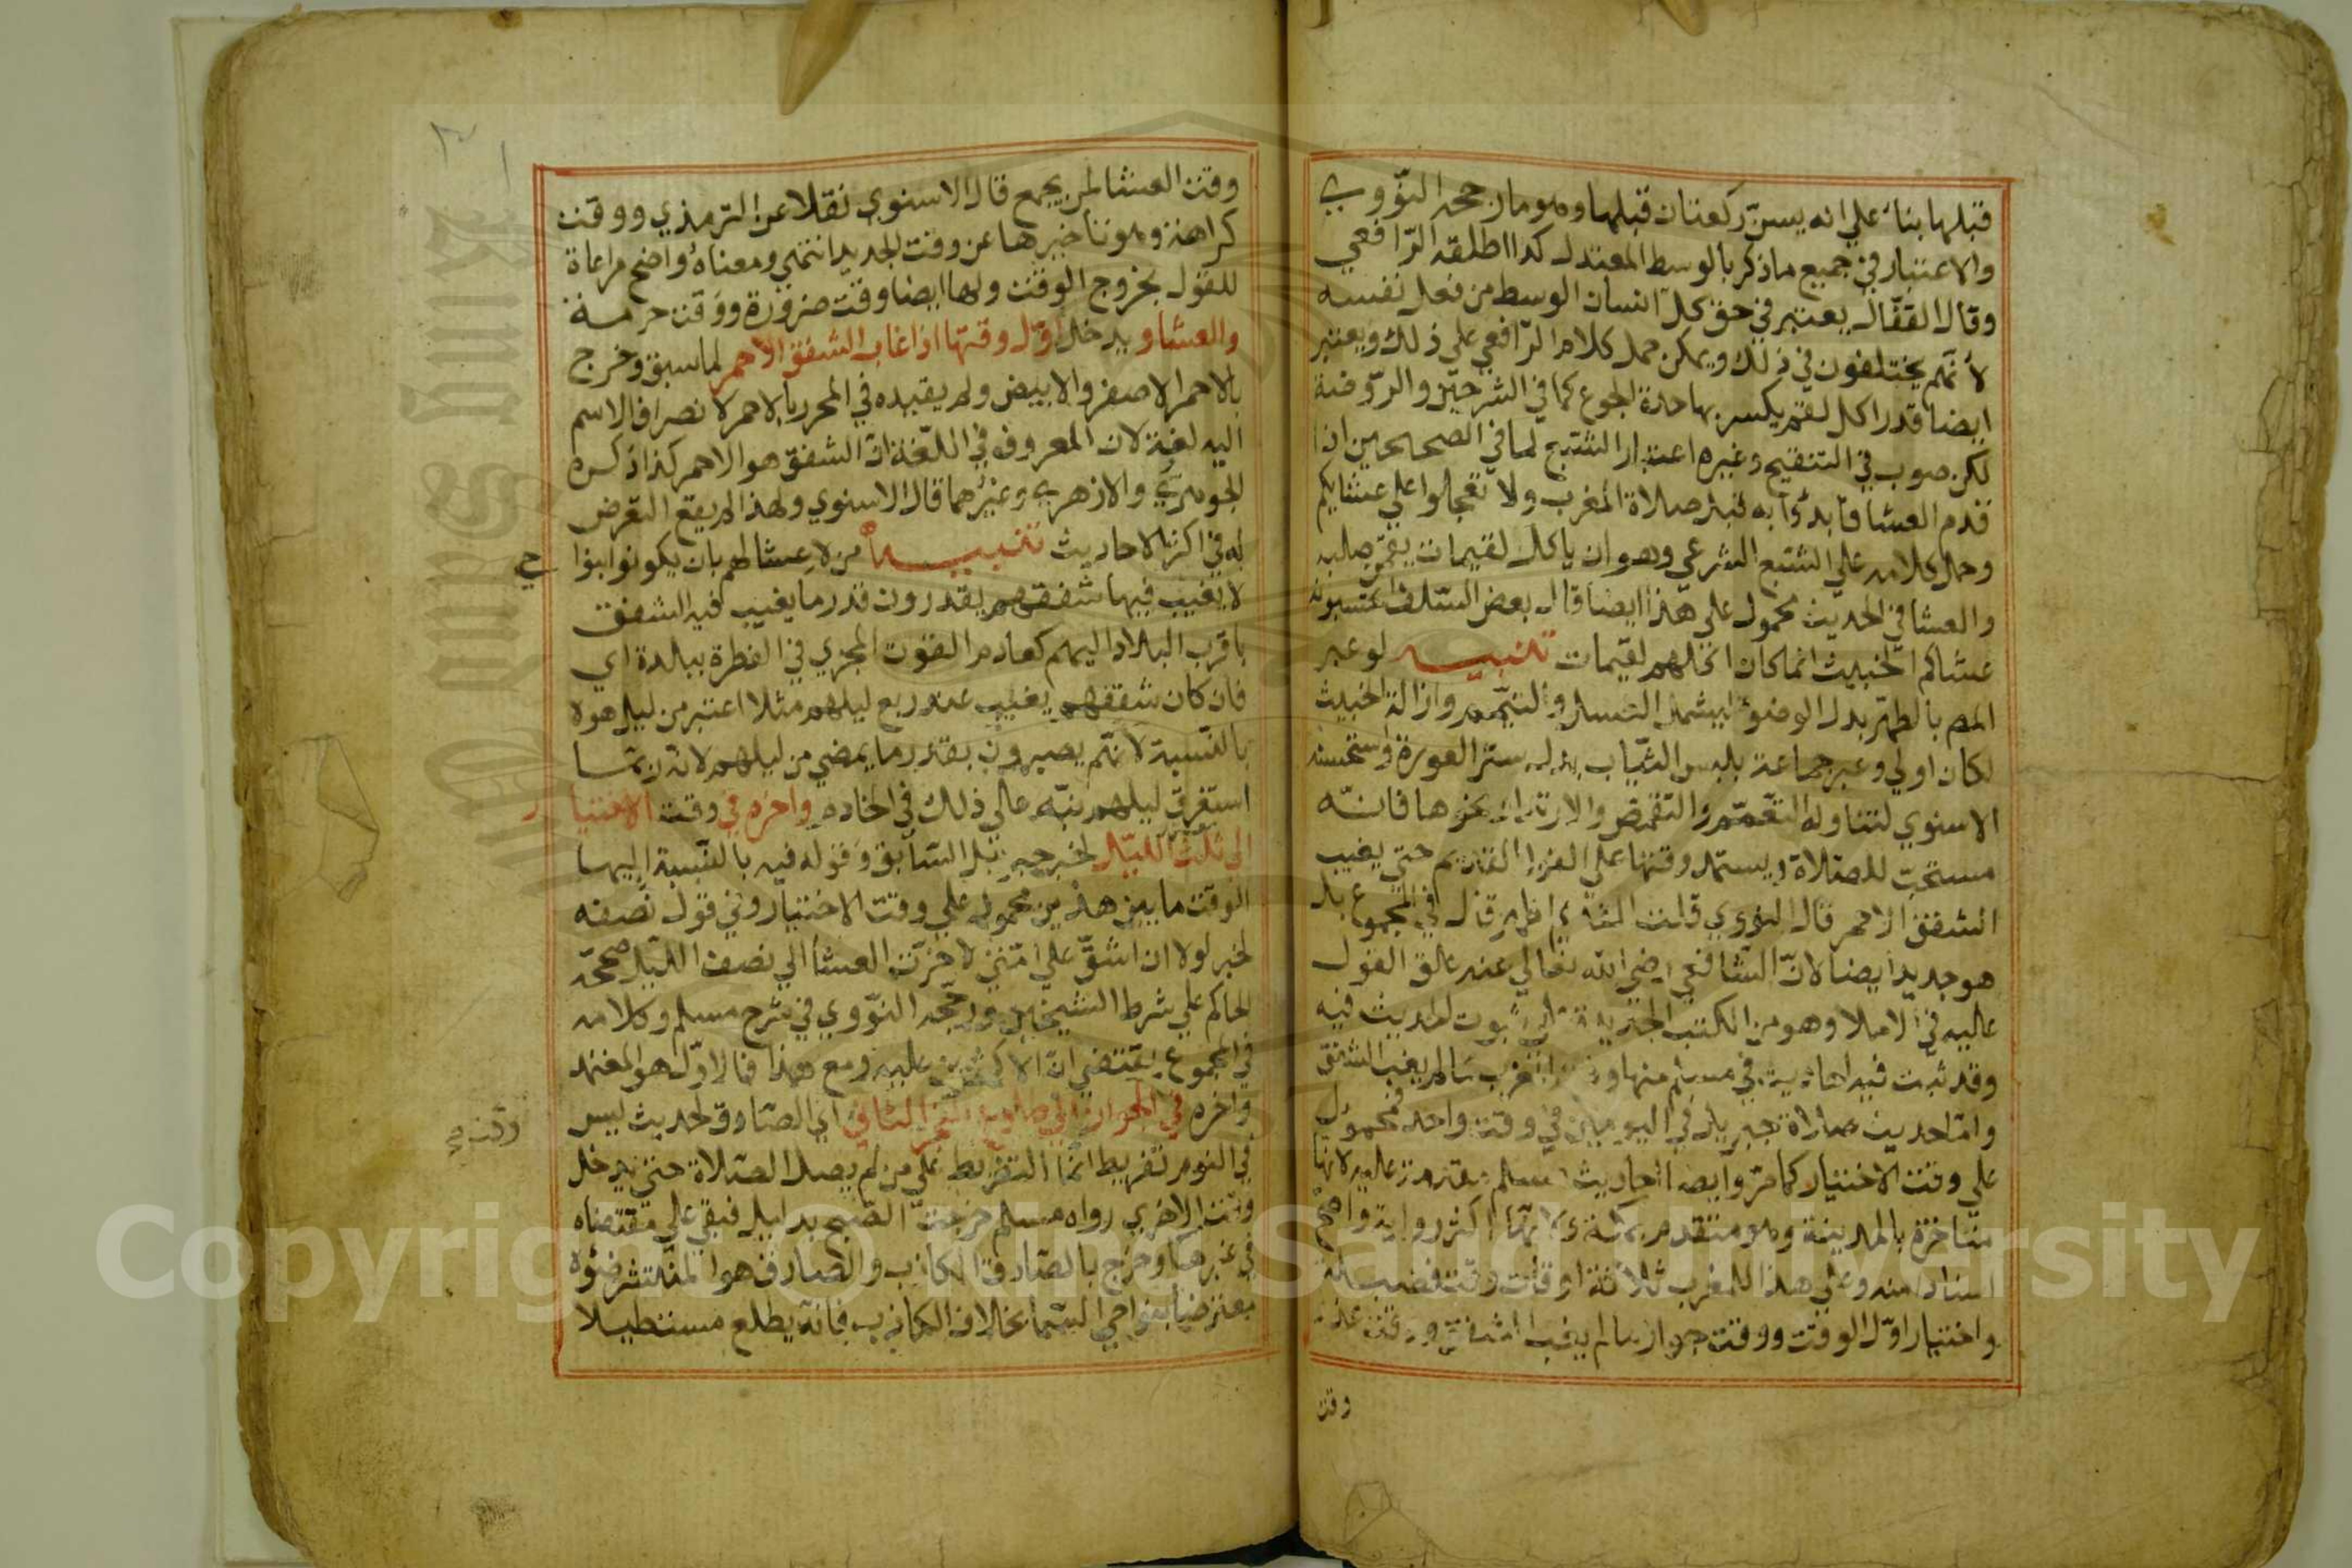 قبلها بناء علي انه يسن ركعتان قبلها وهو ما رجحه النووي
والاعتبار في جميع ما ذكر بالوسط المعتدل كذا اطلقه الرافعي
وقال القفال يعتبر في حق كل انسان الوسط من فعل نفسه
لأنهم يختلفون في ذلك ويمكن حمل كلام الرافعي علي ذلك ويعتبر
ايضا قدر اكل لقم يكسر بها حدة الجوع كما في الشرحين والروضة
لكن صوب في التنقيح وغيره اعتبار الشبع لما في الصحيحين اذا
قدم العشا فابدؤا به قبل صلاة المغرب ولا تعجلوا علي عشايكم
وحمل كلامه علي الشبع الشرعي وهو ان ياكل لقيمات يقمن صلبه
والعشا في الحديث محمول علي هذا ايضا قال بعض السلف اتحسبونه
عشاكم الخبيث انما كان اكلهم لقيمات تنبيه لو عبر
المص بالطهر بدل الوضوء ليشمل الغسل والتيمم وازالة الخبث
لكان اولي وعبر جماعة بلبس الثياب بدل ستر العورة واستحسنه
الاسنوي لتناوله التعمم والتقمص والارتداء ونحوها فانه
مستحب للصلاة ويستمر وقتها علي القول القديم حتي يغيب
الشفق الاحمر قال النووي قلت القديم اظهر قال في المجموع بل
هو جديد ايضا لان الشافعي رضي الله تعالي عنه علق القول
عليه في الاملا وهو من الكتب الجديدة علي ثبوت الحديث فيه
وقد ثبت فيه احاديث في مسلم منها وقت المغرب ما لم يغب الشفق
واما حديث صلاة جبريل في اليومين في وقت واحد فمحمول
علي وقت الاختيار كما مر وايضا احاديث مسلم مقدمة عليه لانها
متاخرة بالمدينة وهو متقدم بمكة ولانها اكثر رواية واصح
اسنادا منه وعلي هذا للمغرب ثلاثة اوقات وقت فضيلة
واختيار اول الوقت ووقت جواز ما لم يغب الشفق ووقت عذر
وقت
وقت العشا لمن يجمع قال الاسنوي نقلا عن الترمذي ووقت
كراهة وهو تاخيرها عن وقت الجديد انتهي ومعناه واضح مراعاة
للقول بخروج الوقت ولها ايضا وقت ضرورة ووقت حرمة
والعشا ويدخل اول وقتها اذا غاب الشفق الاحمر لما سبق وخرج
بالاحمر الاصفر والابيض ولم يقيده في المحرر بالاحمر لانصراف الاسم
اليه لغة لان المعروف في اللغة ان الشفق هو الاحمر كذا ذكره
الجوهري والازهري وغيرهما قال الاسنوي ولهذا لم يقع التعرض
له في اكثر الاحاديث تنبيه من لا عشا لهم بان يكونوا بنواحي
لا يغيب فيها شفقهم يقدرون قدر ما يغيب فيه الشفق
باقرب البلاد اليهم كعادم القوت المجزي في الفطرة ببلده اي
فان كان شفقهم يغيب عند ربع ليلهم مثلا اعتبر من ليل هولا
بالنسبة لا انهم يصبرون بقدر ما يمضي من ليلهم لانه ربما
استغرق ليلهم نبه علي ذلك في الخادم واخره في وقت الاختيار
الي ثلث الليل لخبر جبريل السابق وقوله فيه بالنسبة اليها
الوقت ما بين هذين محمول علي وقت الاختيار وفي قول نصفه
لخبر لولا ان اشق علي امتي لاخرت العشا الي نصف الليل صححه
الحاكم علي شرط الشيخين ورجحه النووي في شرح مسلم وكلامه
في المجموع يقتضي ان الاكثرين عليه ومع هذا فالاول هو المعتمد
واخره في الجواز الي طلوع الفجر الثاني اي الصادق لحديث ليس
في النوم تفريط انما التفريط علي من لم يصل الصلاة حتي يدخل
وقت الاخري رواه مسلم خرجت الصبح بدليل فبقي علي مقتضاه
في غيرها وخرج بالصادق الكاذب والصادق هو المنتشر ضوءه
معترضا بنواحي السما بخلاف الكاذب فانه يطلع مستطيلا
وقت
Copyright © King Saud University
King Saud